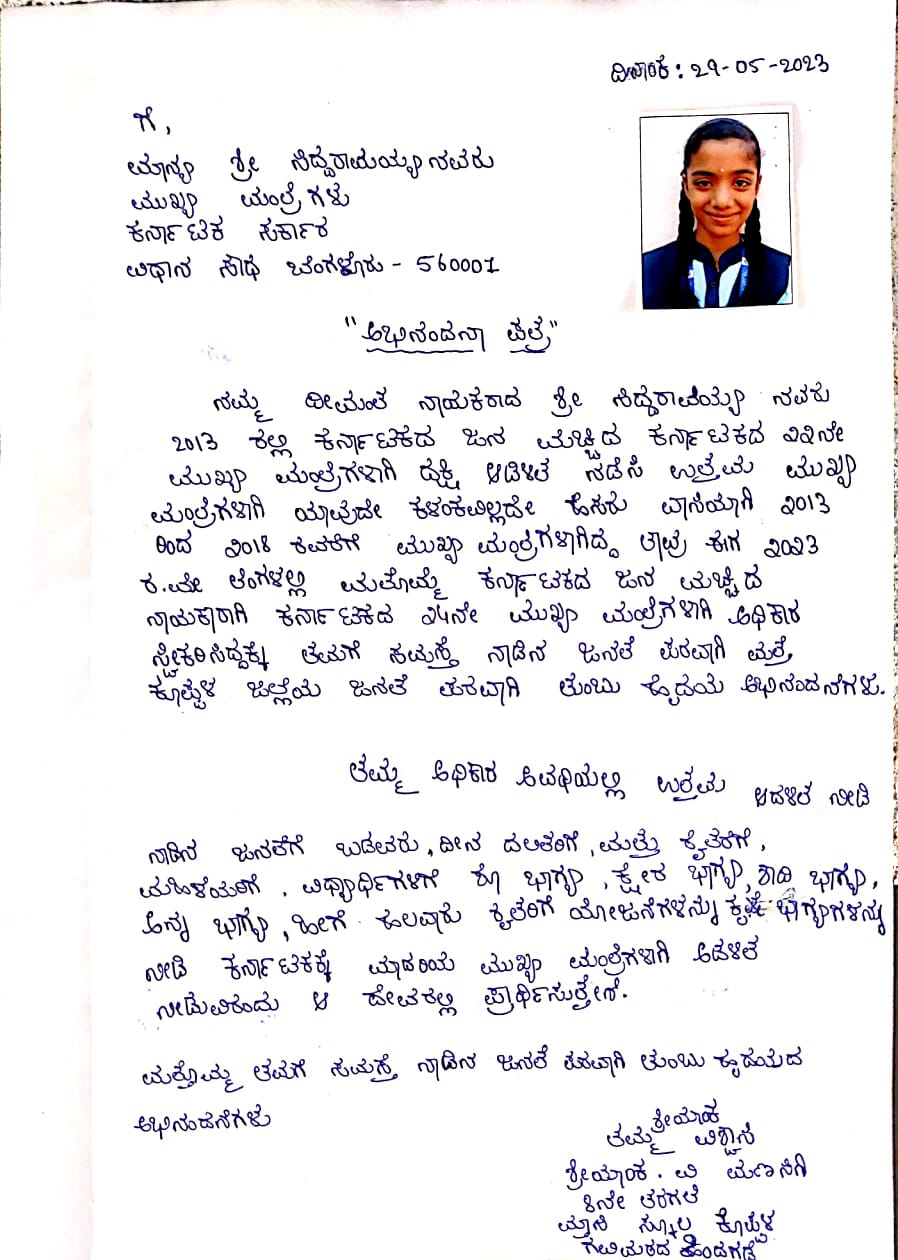 ದಿನಾಂಕ : 29-05-2023
ಗೆ,
ಮಾನ್ಯ ಶ್ರೀ ಸಿದ್ದರಾಮಯ್ಯನವರು
ಮುಖ್ಯ ಮಂತ್ರಿಗಳು
ಕರ್ನಾಟಕ ಸರ್ಕಾರ
ವಿಧಾನ ಸೌಧ ಬೆಂಗಳೂರು - 560001
"ಅಭಿನಂದನಾ ಪತ್ರ"
ನಮ್ಮ ಧೀಮಂತ ನಾಯಕರಾದ ಶ್ರೀ ಸಿದ್ದರಾಮಯ್ಯ ನವರು
2013 ರಲ್ಲಿ ಕರ್ನಾಟಕದ ಜನ ಮೆಚ್ಚಿದ ಕರ್ನಾಟಕದ ೨೨ನೇ
ಮುಖ್ಯ ಮಂತ್ರಿಗಳಾಗಿ ದಕ್ಷ ಆಡಳಿತ ನಡೆಸಿ ಉತ್ತಮ ಮುಖ್ಯ
ಮಂತ್ರಿಗಳಾಗಿ ಯಾವುದೇ ಕಳಂಕವಿಲ್ಲದೇ ಹೆಸರು ವಾಸಿಯಾಗಿ 2013
ರಿಂದ 2018 ರವರೆಗೆ ಮುಖ್ಯ ಮಂತ್ರಿಗಳಾಗಿದ್ದ ತಾವು ಈಗ 2023
ರ.ಮೇ ತಿಂಗಳಲ್ಲಿ ಮತ್ತೊಮ್ಮೆ ಕರ್ನಾಟಕದ ಜನ ಮೆಚ್ಚಿದ
ನಾಯಕಾರಾಗಿ ಕರ್ನಾಟಕದ ೨೪ನೇ ಮುಖ್ಯ ಮಂತ್ರಿಗಳಾಗಿ ಅಧಿಕಾರ
ಸ್ವೀಕರಿಸಿದ್ದಕ್ಕೆ ತಮಗೆ ಸಮಸ್ತ ನಾಡಿನ ಜನತೆ ಪರವಾಗಿ ಮತ್ತು
ಕೊಪ್ಪಳ ಜಿಲ್ಲೆಯ ಜನತೆ ಪರವಾಗಿ ತುಂಬು ಹೃದಯ ಅಭಿನಂದನೆಗಳು.
ತಮ್ಮ ಅಧಿಕಾರ ಅವಧಿಯಲ್ಲಿ ಉತ್ತಮ ಆಡಳಿತ ನೀಡಿ
ನಾಡಿನ ಜನತೆಗೆ ಬಡವರು, ದೀನ ದಲಿತರಿಗೆ, ಮತ್ತು ರೈತರಿಗೆ,
ಮಹಿಳೆಯರಿಗೆ, ವಿದ್ಯಾರ್ಥಿಗಳಿಗೆ ಶೂ ಭಾಗ್ಯ, ಕ್ಷೀರ ಭಾಗ್ಯ, ಶಾದಿ ಭಾಗ್ಯ,
ಅನ್ನ ಭಾಗ್ಯ, ಹೀಗೆ ಹಲವಾರು ರೈತರಿಗೆ ಯೋಜನೆಗಳನ್ನು ಕೃಷಿ ಭಾಗ್ಯಗಳನ್ನು
ನೀಡಿ ಕರ್ನಾಟಕಕ್ಕೆ ಮಾದರಿಯ ಮುಖ್ಯ ಮಂತ್ರಿಗಳಾಗಿ ಆಡಳಿತ
ನೀಡುವಿರೆಂದು ಆ ದೇವರಲ್ಲಿ ಪ್ರಾರ್ಥಿಸುತ್ತೇನೆ.
ಮತ್ತೊಮ್ಮ ತಮಗೆ ಸಮಸ್ತ ನಾಡಿನ ಜನತೆ ಪರವಾಗಿ ತುಂಬು ಹೃದಯದ
ಅಭಿನಂದನೆಗಳು
ಶ್ರೇಯಾಂಕ
ತಮ್ಮ ವಿಶ್ವಾಸಿ
ಶ್ರೇಯಾಂಕ. ವಿ ಮಣ್ಣಸಿಗಿ
8ನೇ ತರಗತಿ
ಸ್ಕೂಲ ಕೊಪ್ಪಳ
ಗವಿಮಠದ ಹಿಂದಗಡೆ